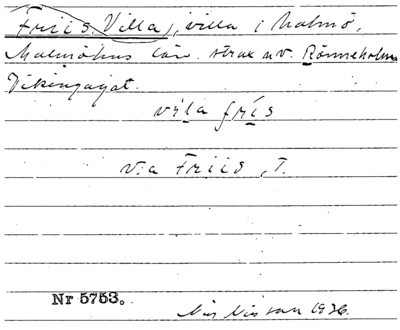 Friis Villa), villa i Malmö,
Malmöhus län. strax n v. Rönneholm
Vikingagat.
vila frís
v. a Friis, T.
Nr 5753.
1936.